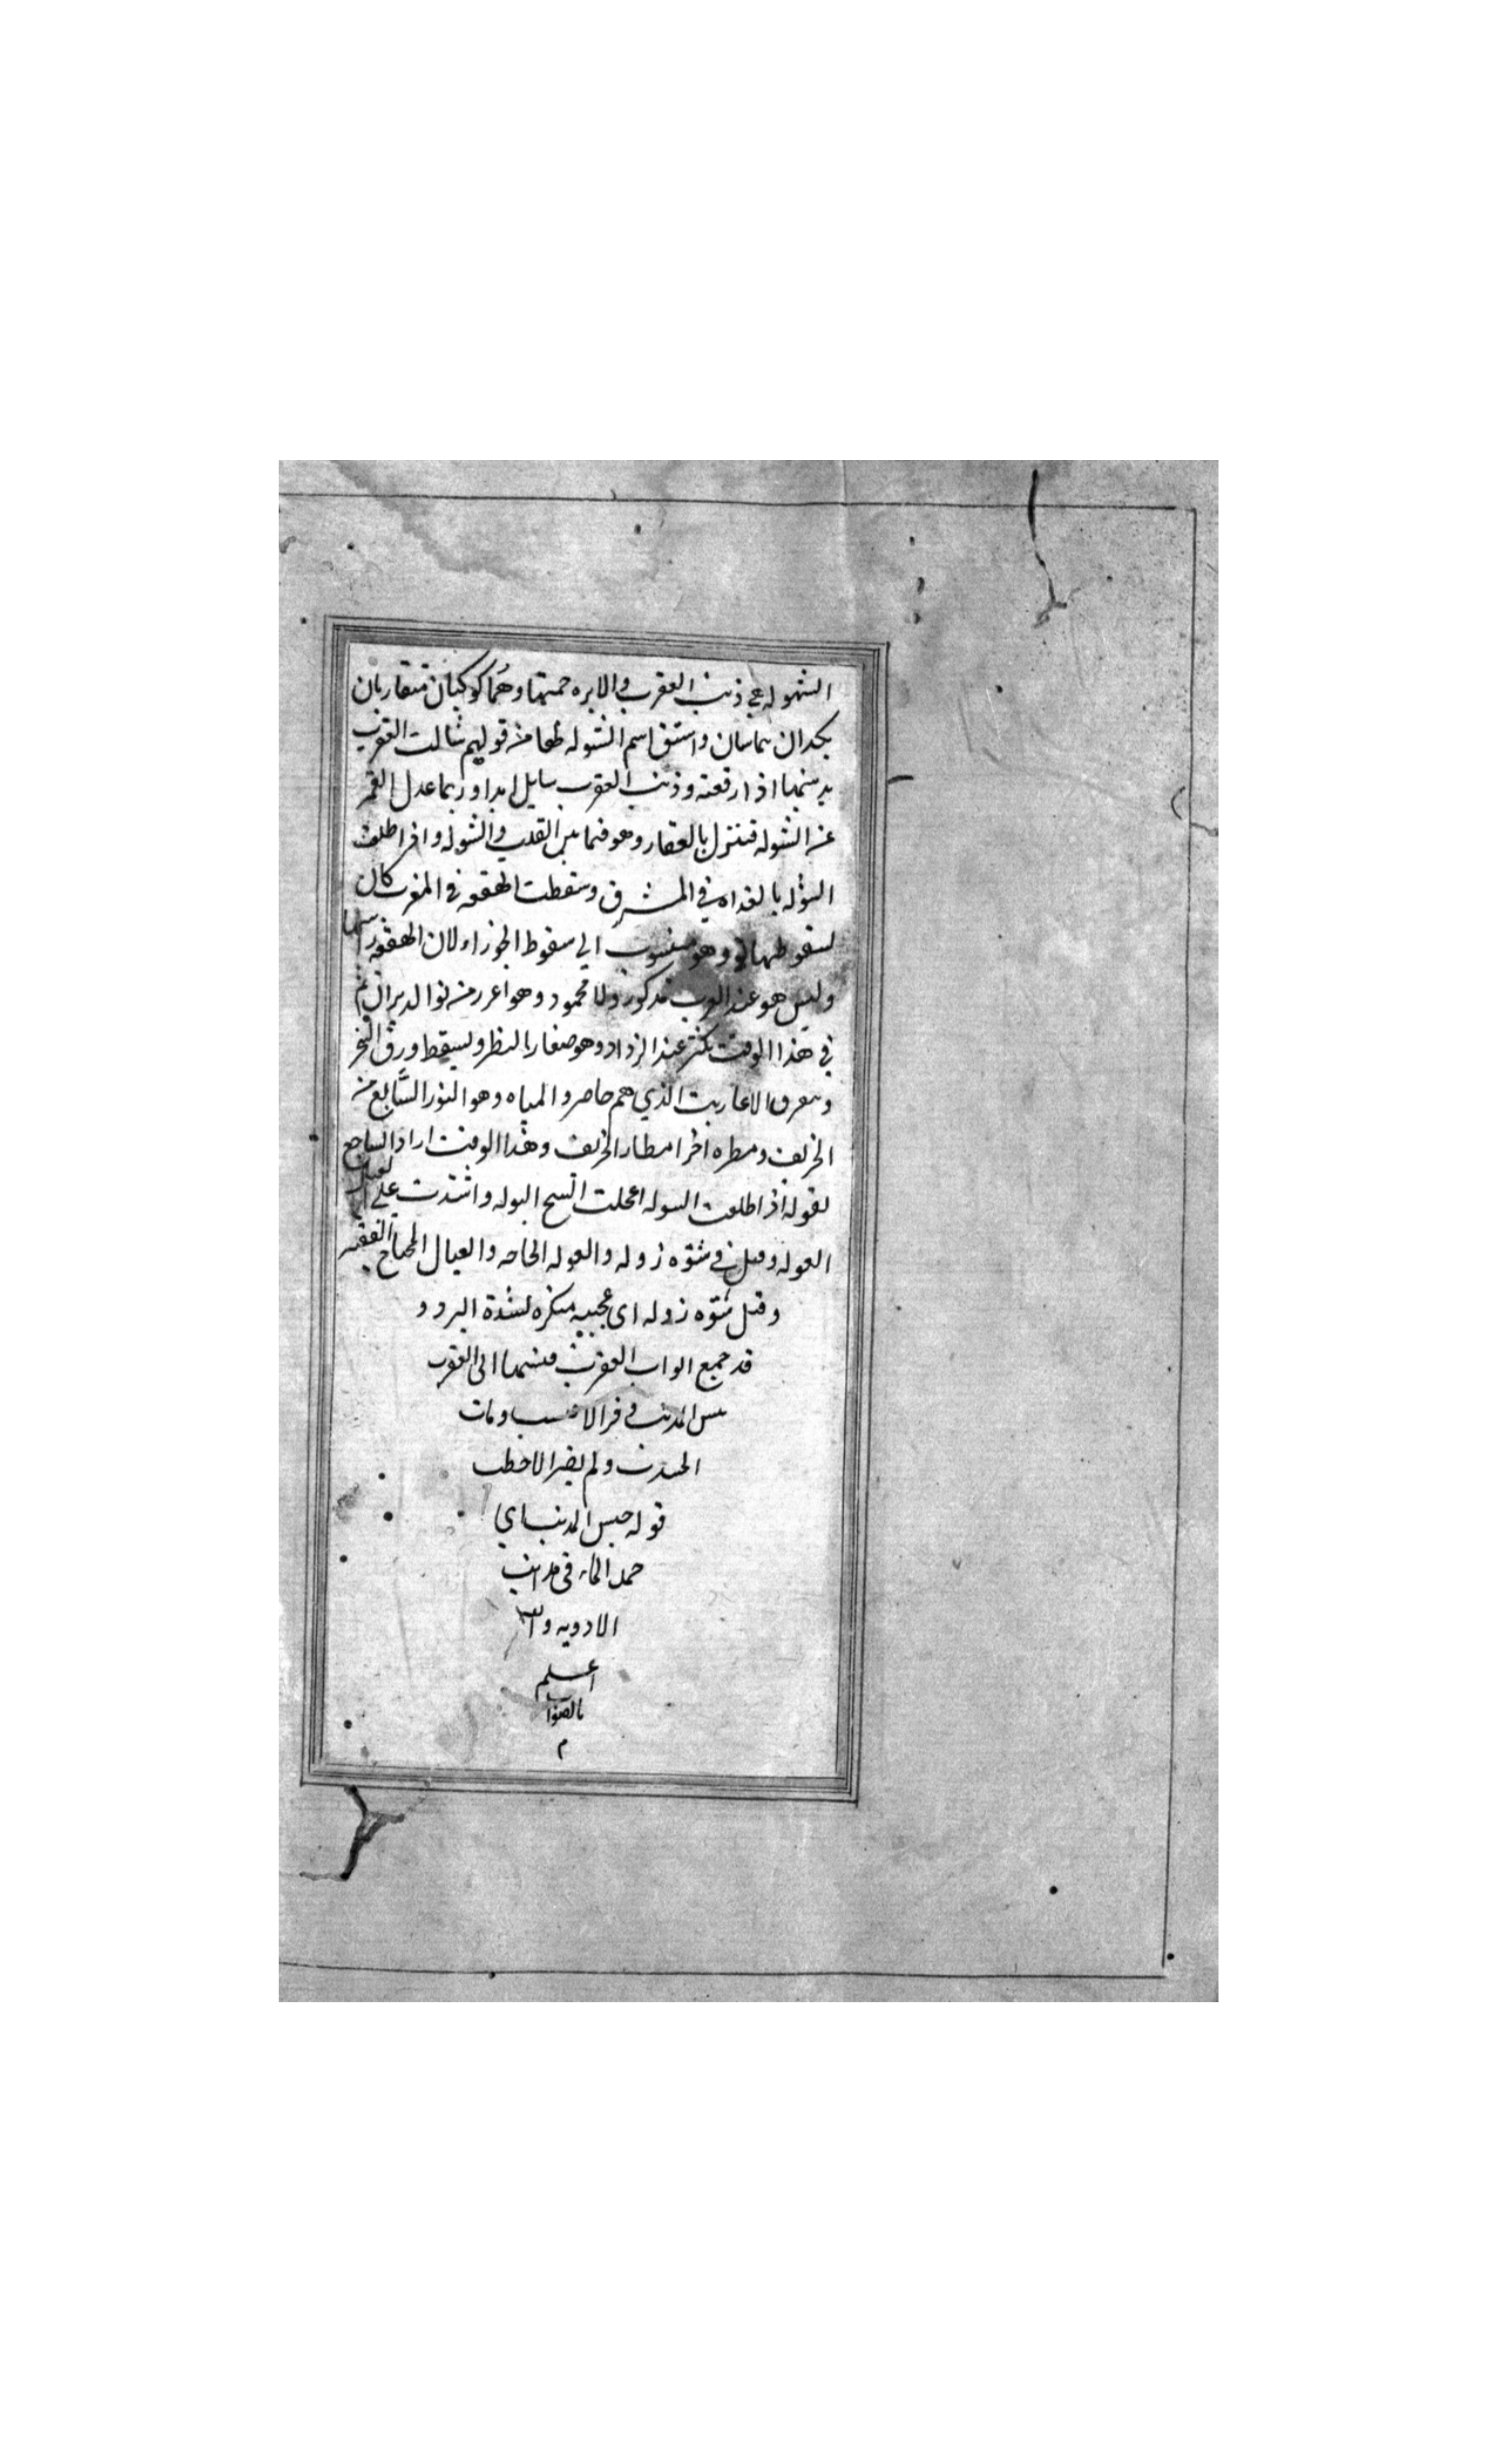 الشوله هي ذنب العقرب والابره حمتها وهما كوكبان متقاربان
يكدان يماسان واشتق اسم الشوله لها من قولهم شالت العقرب
بذنبها اذا رفعته وذنب العقرب شايل ابدا وربما عدل القمر
عن الشوله فينزل بالفقار وهو فيما بين القلب والشوله واذا طلعت
الشوله بالغداه في المشرق وسقطت الهقعه في المغرب كان
لسقوطها نوو وهو منسوب الي سقوط الجوزاء لان الهقعه راسها
وليس هو عند العرب مذكور ولا محمود وهو اغرر من نوا الدبران
في هذا الوقت يكثر عند الزداد وهو صغار بالنظر ويسقط ورق الشجر
الاعاريب الذي هم حاضرو المياه وهو النور السابع من
الخريف ومطره اخر امطار الخريف وهذا الوقت اراد الساجع
لقوله اذا طلعت الشوله اعجلت الشيخ البوله واشتدت علي العيال
العوله وقيل في شتوه زوله والعوله الحاجه والعيال المحتاج الفقير
وقيل شتوه زوله اي عجيبه منكره لشدة البرد و
قد جمع ابواب العقرب فنسبها الى العقرب
المذنب وقر الاشيب ومات
الجندب ولم يصر الاخطب
قوله حبس المذنب اي
حمد الماء في مذانب
الادويه والله
اعلم
بالصواب
م